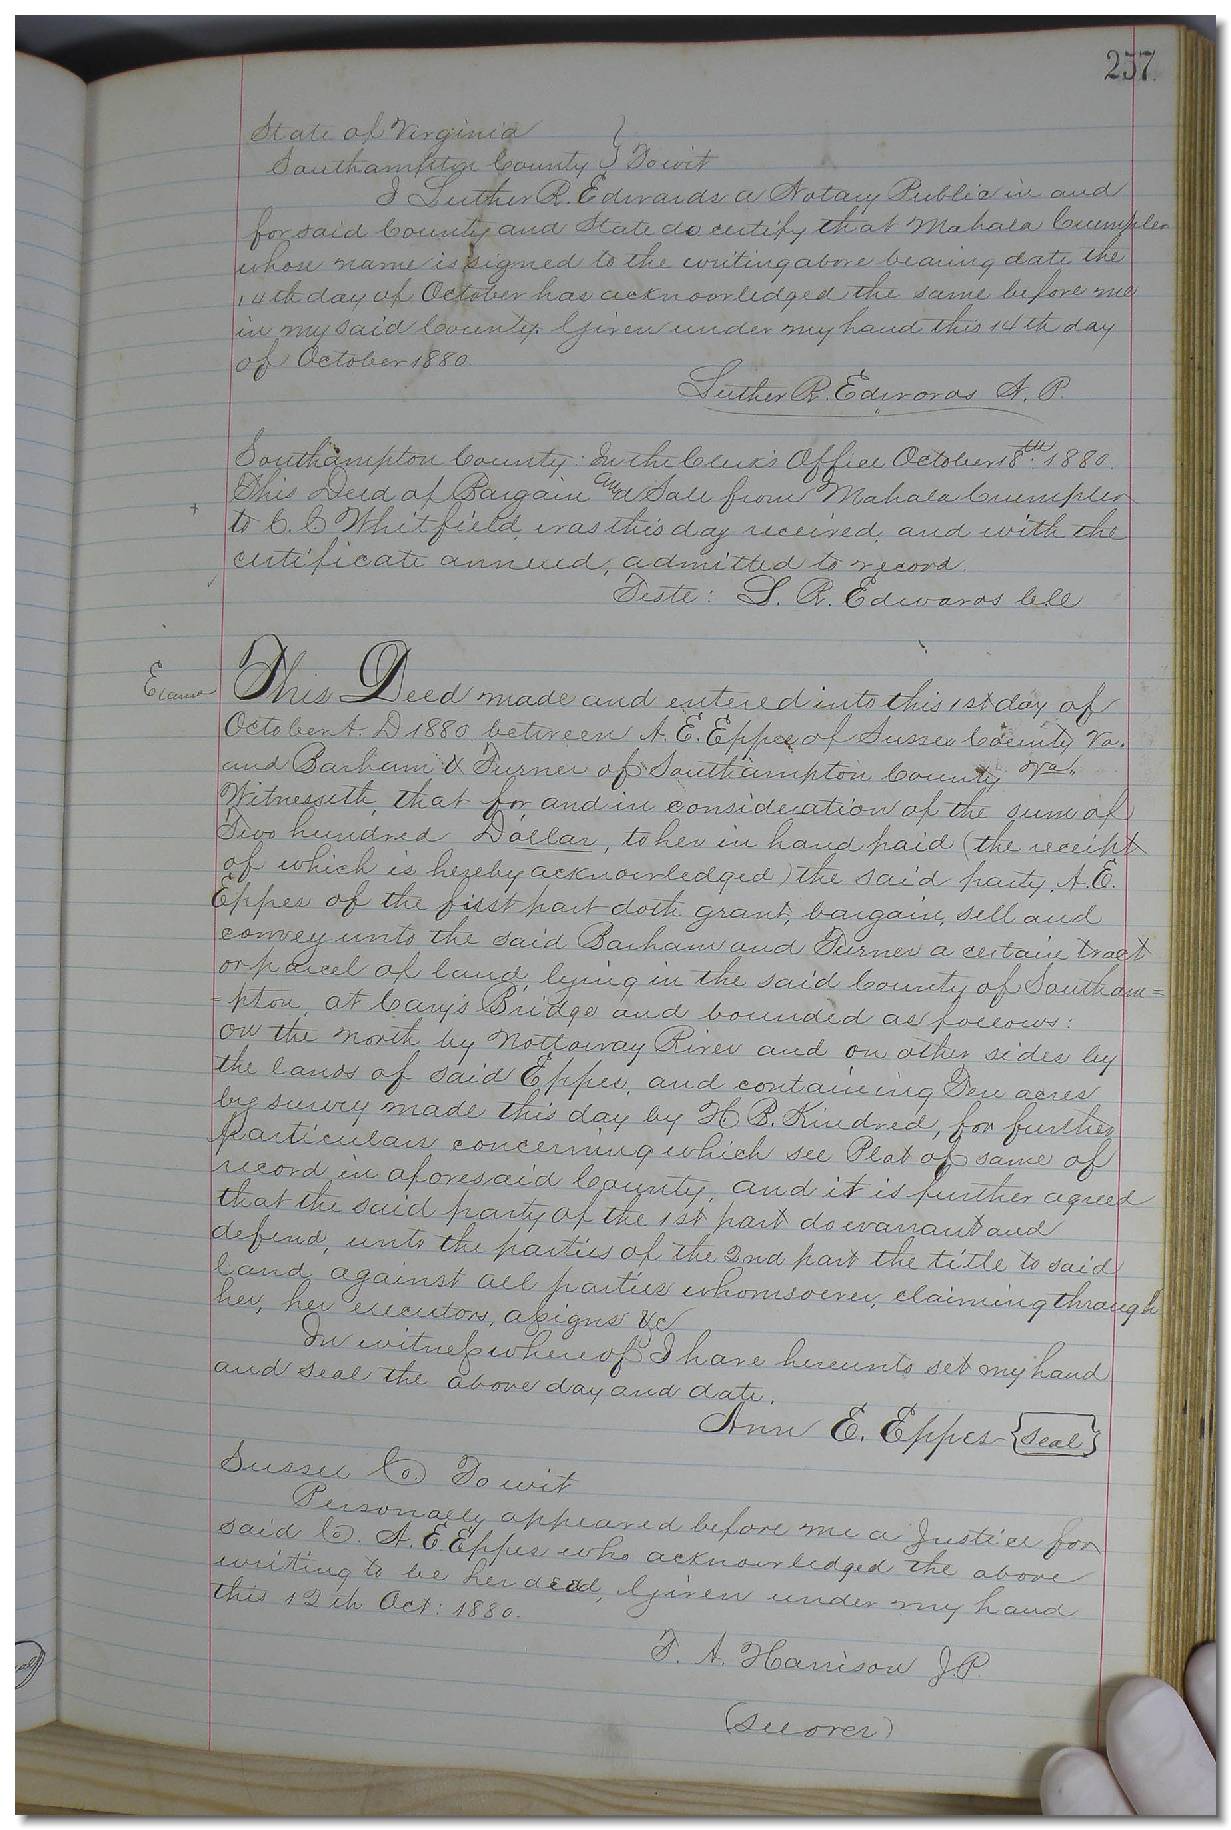 257
State of Virginia
Southampton County } To wit
I Luther R. Edwards a Notary Public in and
for said County and State do certify that Mahala Crumpler
whose name is signed to the writing above bearing date the
14th day of October has acknowledged the same before me
in my said County. Given under my hand this 14th day
of October 1880.
Luther R. Edwards N. P.
Southampton County: In the Clerk's Office October 18th 1880.
This Deed of Bargain and Sale from Mahala Crumpler
to C. C Whitfield, was this day received, and with the
certificate annexed, admitted to record.
Teste: L. R. Edwards Clk
This Deed made and entered into this 1st day of
October A. D 1880 between A. E. Eppes of Sussex County Va.
and Barham & Turner of Southampton County Va.
Witnesseth, that for and in consideration of the sum of
Two hundred Dollar, to her in hand paid (the receipt
of which is hereby acknowledged) the said party, A. E.
Eppes of the first part doth grant, bargain, sell and
convey unto the said Barham and Turner a certain tract
or parcel of land, lying in the said County of Southam=
=pton, at Cary's Bridge and bounded as follows:
on the north by Nottoway River and on other sides by
the lands of said Eppes, and containing Ten acres
by survey made this day by H B. Kindred, for further
particulars concerning which see Plat of same of
record in aforesaid County, and it is further agreed
that the said party of the 1st part do warrant and
defend, unto the parties of the 2nd part the title to said
land against all parties whomsoever, claiming through
her, her executors, assigns &c
In witness whereof I have hereunto set my hand
and seal the above day and date.
Ann E. Eppes {Seal}
Sussex Co To wit
Personally appeared before me a Justice for
said Co. A. E Eppes who acknowledged the above
writing to be her deed, Given under my hand
this 12th Oct: 1880.
T. A. Harrison J.P.
(See over)